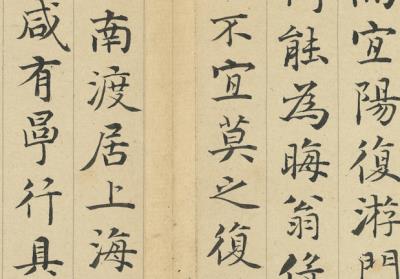 宜陽復游門
能為晦翁
不宜莫之復
南渡居上海
咸有㽞行具